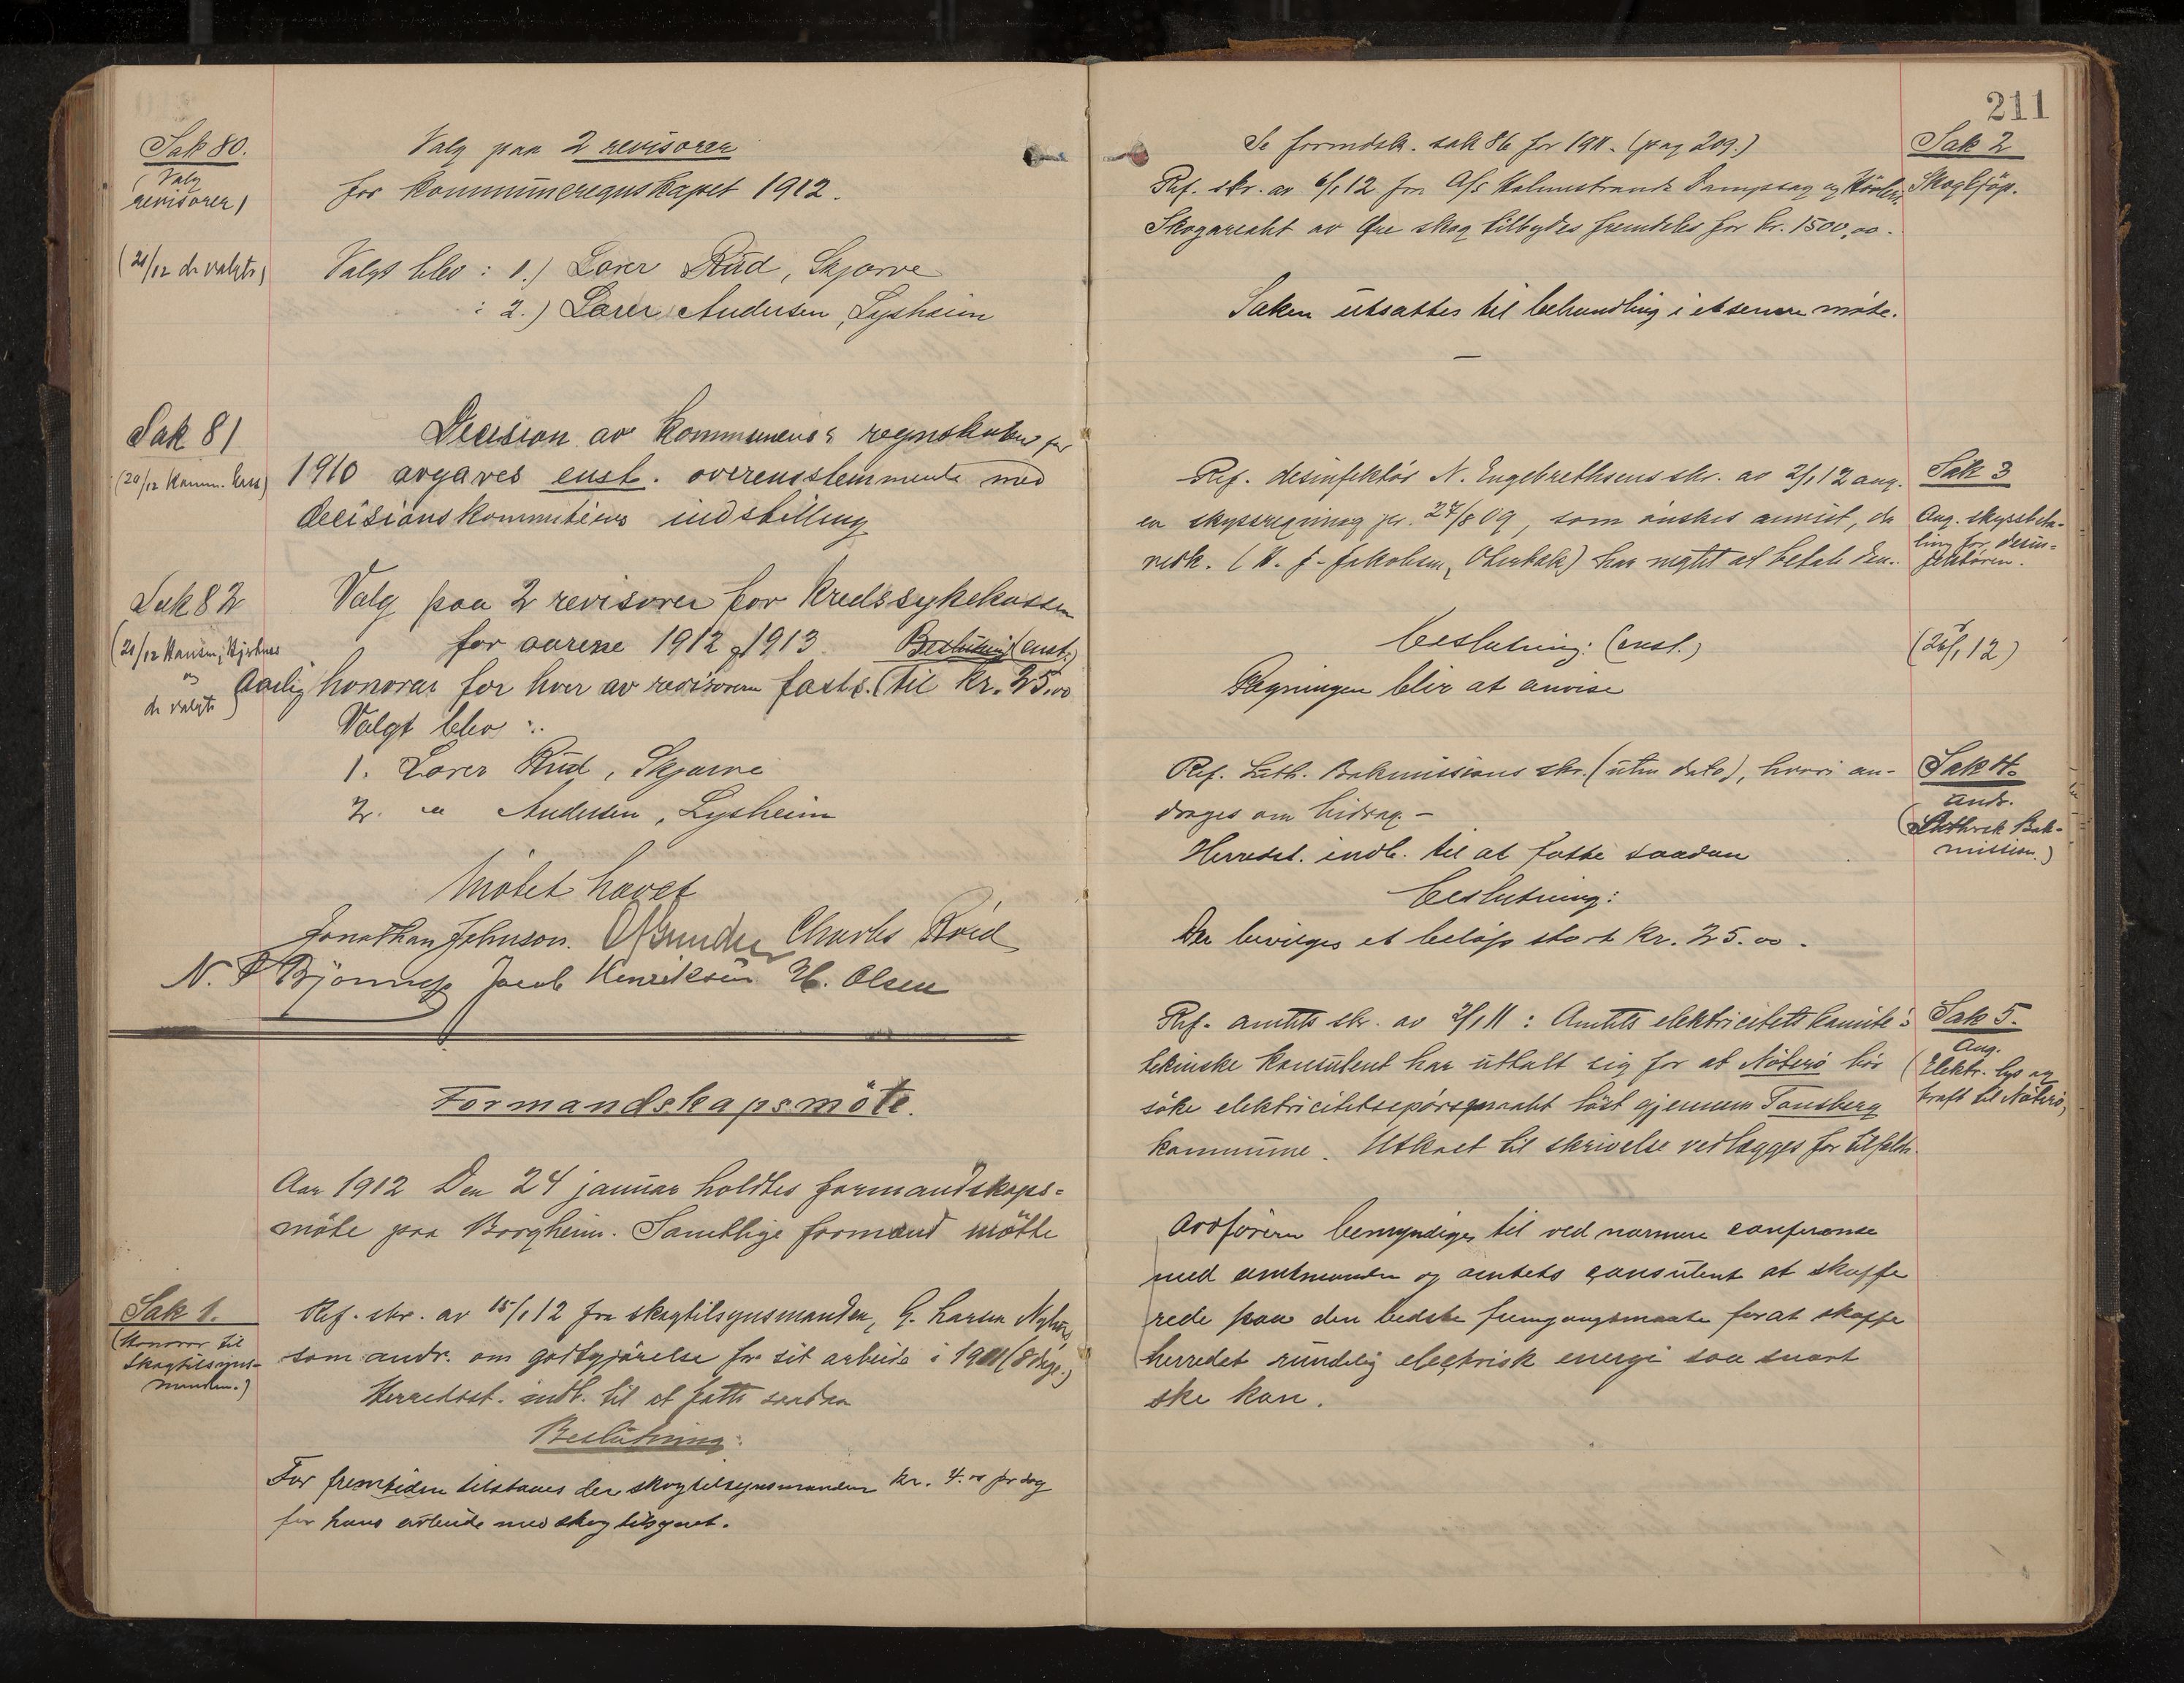 Sak 80.
(Valg
revisorer)
(21/12 de valgte)
Valg paa 2 revisorer
for kommuneregnskapet 1912.
Valgt blev : 1.) Lærer Ruud, Skjærve
: 2.) Lærer Andersen, Lysheim
Sak 81
(20/12 Komm. kass)
Decision av kommunens regnskaber for
1910 avgaves enst. overensstemmente med
decisionskommiteens indstilling
Sak 82
(21/12
og
de valgte)
Valg paa 2 revisorer for kredssykekassen
for aarene 1912 og 1913. Beslutning (enst.)
Aarlig honorar for hver av revisorerne fasts. til kr. 25.00
Valgt blev :
1. Lærer Ruud, Skjærve
2. " Andersen, Lysheim
Møtet hævet
Jonathan Johnson. Charles Röed
N. P. Jacob Henriksen H. Olsen
Formandskapsmöte.
Aar 1912 Den 24 januar holdtes formandskaps=
möte paa Borgheim. Samtlige formænd mötte
Sak 1.
(Honorar til
skogtilsyns-
manden.)
Ref. skr. av 15/1 12 fra skogtilsynsmanden, G. Larsen
som andr. om godtgjörelse for sit arbeide i 1911 (8 dage.)
Herredsst. indb. til at fatte saadan
Beslutning:
For fremtiden tilstaaes der skogtilsynsmanden kr. 4.00 pr dag
for hans arbeide med skogtilsynet.
211
Se formdsk. sak 86 for 1911. (pag 209.)
Ref. skr. av 6/1 12 fra A/s Holmestrands Dampsag og Hövleri.
Skogarealet av skog tilbydes fremdeles for kr. 1500,00.
Sak 2
Skogkjöp.
Saken utsattes til behandling i et senere møte.
Ref. desinfektör N. Engebrethsens skr. av 2/1 12 ang.
en skyssregning pr. 27/8 09, som önskes anvist, da
vedk. har negtet at betale den.
Sak 3
Ang. skyssbeta-
ling for desin=
fektören.
beslutning: (enst.)
(26/1 12)
Regningen blir at anvise
Ref. Luth. Bokmissions skr. (uten dato), hvori an-
drages om bidrag. -
Herredsst. indb. til at fatte saadan
beslutning:
Der bevilges et beløp stort kr. 25.00.
Sak 4.
andr.
(Luthersk Bok-
mission.)
Ref. amtets skr. av 2/1 11 : Amtets elektricitetskomité's
tekniske konsulent har uttalt sig for at Nöterö bör
söke elektricitetsspörsmaalet löst gjennem Tönsberg
kommune. Utkast til skrivelse vedlægges for tilfældet.
Sak 5.
Ang.
(Elektr. lys og
kraft til Nöterö)
Ordføreren bemyndiges til ved nærmere conference
med amtmanden og amtets consulent at skaffe
rede paa den bedste fremgangsmaate for at skaffe
herredet rundelig elektrisk energi saa snart
ske kan.